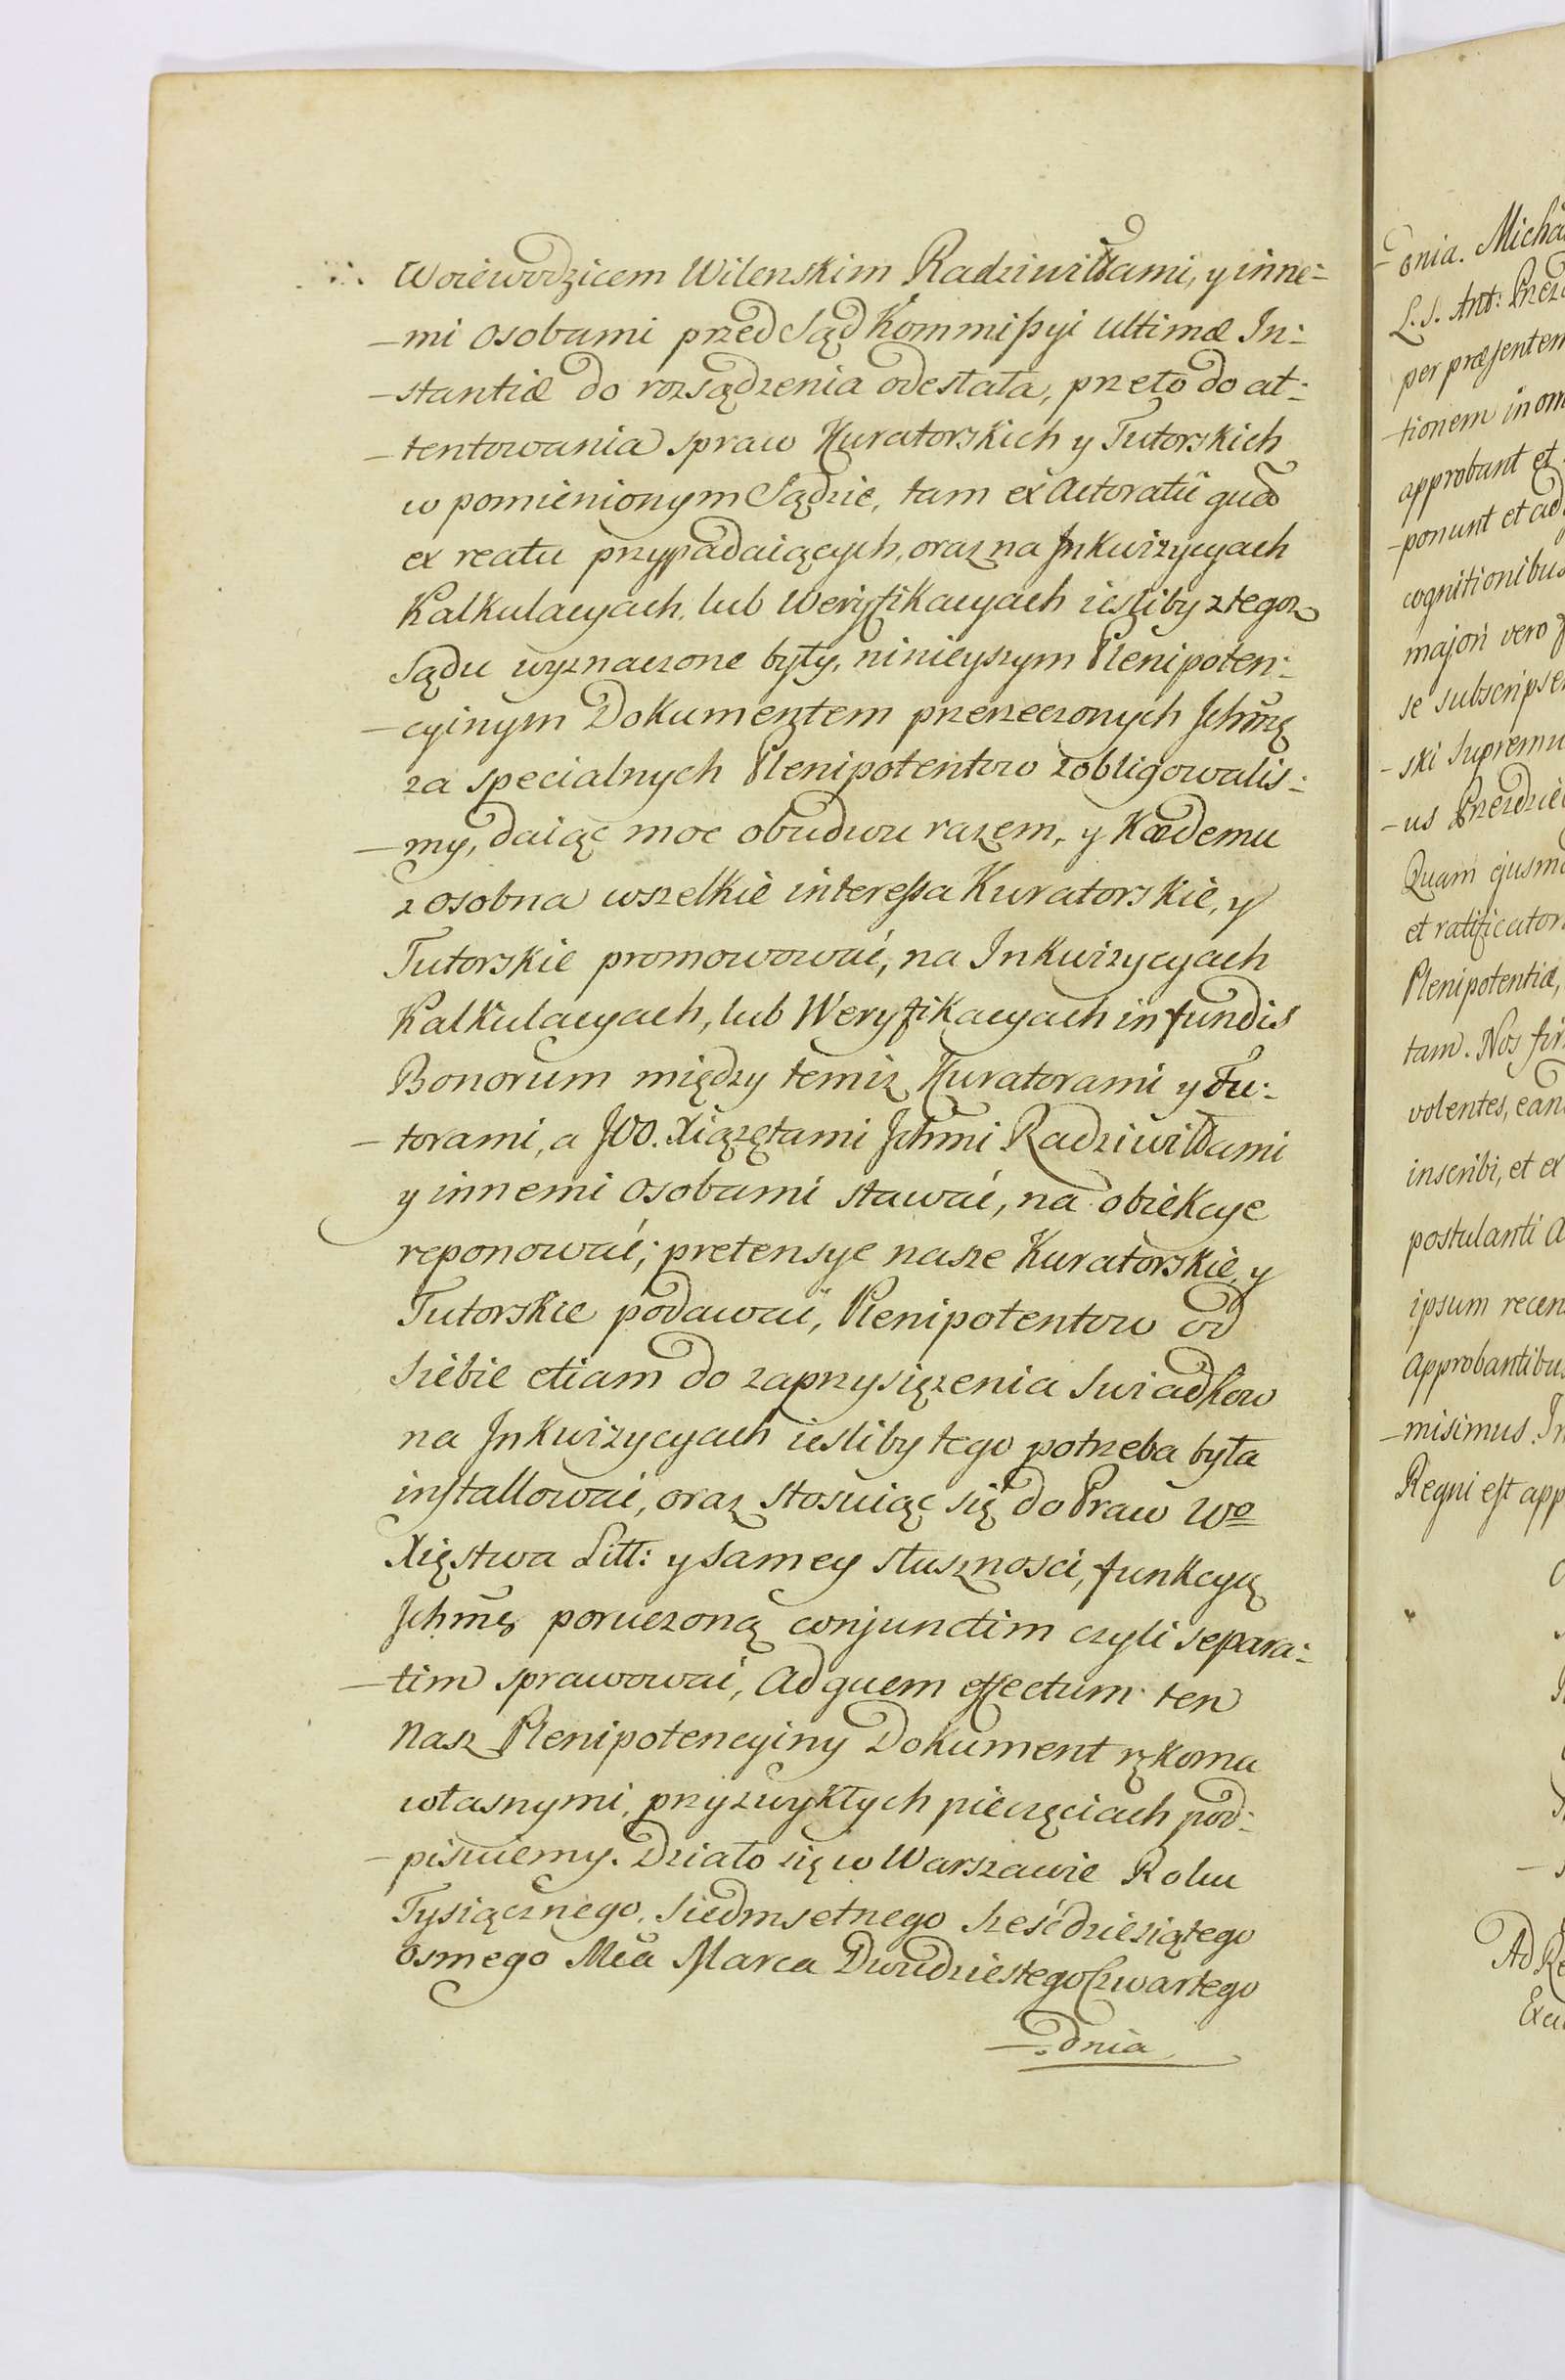 Woiewodzicem Wilenskim Radziwiłłami, y inne:
—mi osobami przed Sąd Kommissyi ultimæ In:
—stantiæ do rozsądzenia odesłała, przeto do at:
—tentowania spraw Kuratorskich y Tutorskich
w pomienionym Sądzie, tam ex Actoratû quā
ex reatu przypadaiących, oraz na Inkwizycyach
Kalkulacyach, lub Weryfikacyach iesliby z tegoz
Sądu wyznaczone były, ninieyszym Plenipoten:
—cyinym Dokumentem przerzeczonych Ichmę
za specialnych Plenipotentow zobligowalis:
—my, daiąc moc obudwu razem, y Kożdemu
z osobna wszelkie interessa Kuratorskie, y
Tutorskie promowować, na Inkwizycyach
Kalkulacyach, lub Weryfikacyach in fundis
Bonorum między temiż Kuratorami y Tu:
—torami, a JOO. Xiążętami Ichmi Radziwiłłami
y innemi osobami stawać, na obiekcye
reponować; pretensye nasze Kuratorskie, y
Tutorskie podawać, Plenipotentow od
siebie etiam do zaprzysiężenia Swiadkow
na Inkwizycyach iesliby tego potrzeba była
installować, oraz stosuiąc się do Praw Wo
Xięstwa Litt: y samey słuszności, funkcyą
Ichmę poruczoną conjunctim czyli separa:
—tim sprawować, Ad quem effectum ten
Nasz Plenipotencyiny Dokument rękoma
własnymi, przy zwykłych pieczęciach pod:
—pisuiemy. Działo się w Warszawie Roku
Tysiącznego, Siedmsetnego Sześćdziesiątego
osmego Mca Marca Dwudziestego Czwartego
—. dnia
—dnia. Micha
L. S. Ant: Przez
per præsentem
—tionem in om
approbant et
—ponunt et ad
cognitionibus
majori vero
se subscripse
—ski Supremu
—us Przezdzie
Quam ejusmo
et ratificator
Plenipotentiæ,
tam. Nos fir
volentes, ean
inscribi, et ex
postulanti a
ipsum recen
approbantibu
—misimus. In
Regni est app
Ad Re